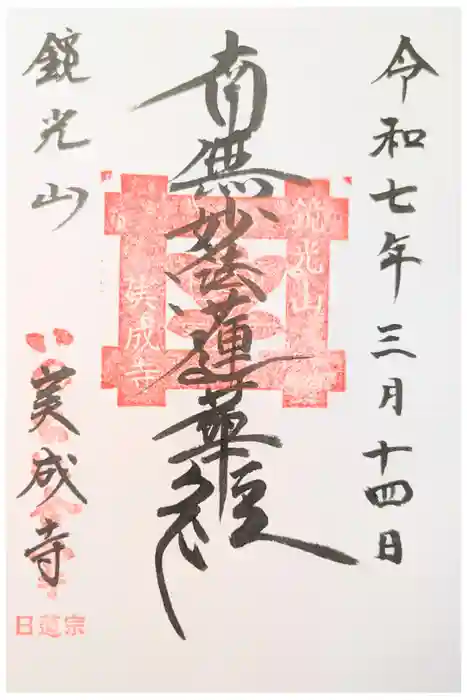 令和七年三月十四日
南無妙法蓮華経
鏡光山
美成寺
鏡光山
美成寺
日蓮宗